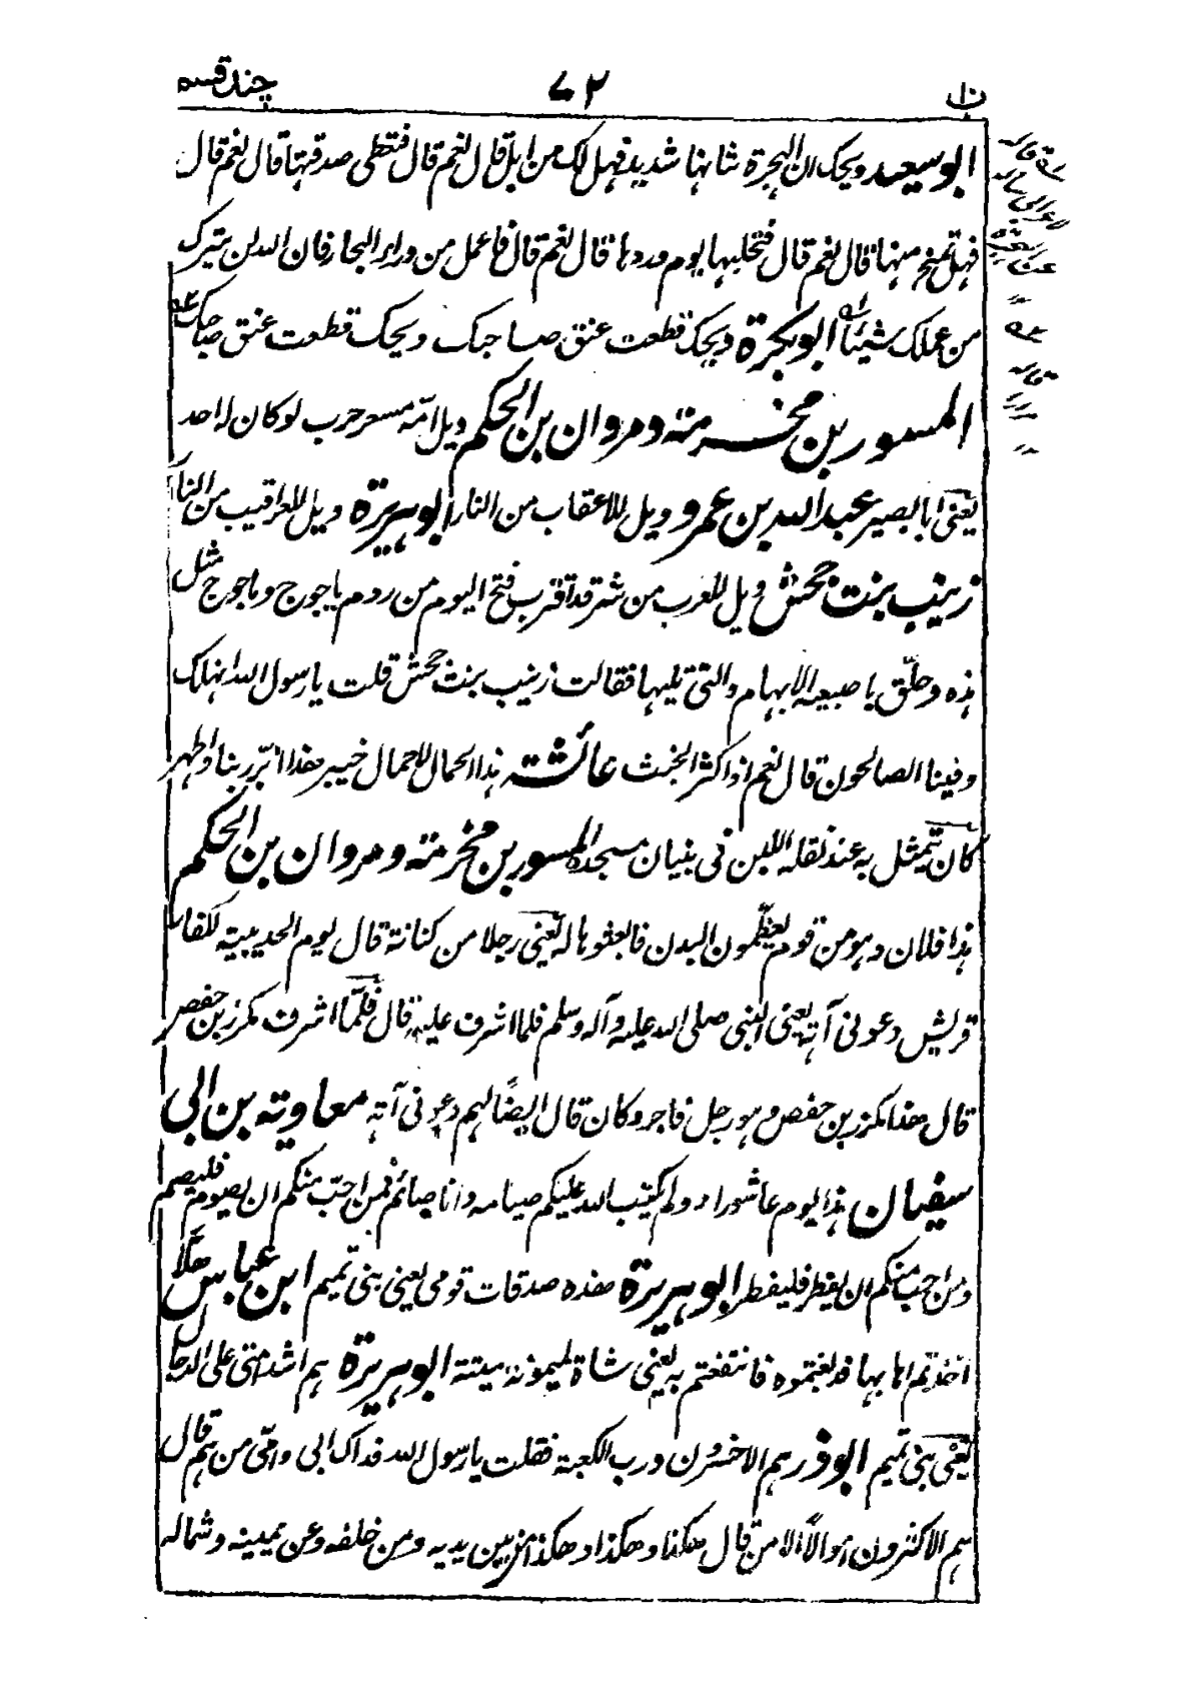 چند قسم
۷۲
ابوسعید ویحک ان الهجرة شانها شدید فهل لک من ابل قال نعم قال فتعطی صدقتها قال نعم قال
فهل تمنح منها قال نعم قال فتحلبها یوم وردها قال نعم قال فاعمل من وراء البحار فان الله لن یترک
من عملک شیئا ابوبکرة ویحک قطعت عنق صاحبک ویحک قطعت عنق صاحبک
المسور بن مخرمة ومروان بن الحکم ویل امّه مسعر حرب لو کان له احد
یعنی ابا بصیر عبد الله بن عمرو ویل للاعقاب من النار ابوهریرة ویل للعراقیب من النار
زینب بنت جحش ویل للعرب من شر قد اقترب فتح الیوم من ردم یاجوج وماجوج مثل
هذه وحلّق باصبعه الابهام والتی تلیها فقالت زینب بنت جحش قلت یا رسول الله انهلک
وفینا الصالحون قال نعم اذا کثر الخبث عائشة هذا الحمال لا حمال خیبر هذا ابرّ ربنا واطهر
کان یتمثل به عند نقله اللبن فی بنیان مسجده المسور بن مخرمة ومروان بن الحکم
هذا فلان وهو من قوم یعظّمون البدن فابعثوها له یعنی رجلا من کنانة قال یوم الحدیبیة لکفار
قریش دعونی آته یعنی النبی صلی الله علیه وآله وسلم فلما اشرف علیه قال فلمّا اشرف مکرز بن حفص
قال هذا مکرز بن حفص وهو رجل فاجر وکان قال ایضًا لهم دعونی آته معاویة بن ابی
سفیان هذا یوم عاشوراء ولم یکتب الله علیکم صیامه وانا صائم فمن احبّ منکم ان یصوم فلیصم
ومن احب منکم ان یفطر فلیفطر ابوهریرة هذه صدقات قومی یعنی بنی تمیم ابن عباس هلّا
اتخذتم اهابها فدبغتموه فانتفعتم به یعنی شاة لمیمونة میتة ابوهریرة هم اشد امتی علی الدجال
یعنی بنی تمیم ابوذر هم الاخسرون ورب الکعبة فقلت یا رسول الله فداک ابی وامّی من هم قال
هم الاکثرون اموالاً الا من قال هکذا وهکذا وهکذا من بین یدیه ومن خلفه وعن یمینه وشماله